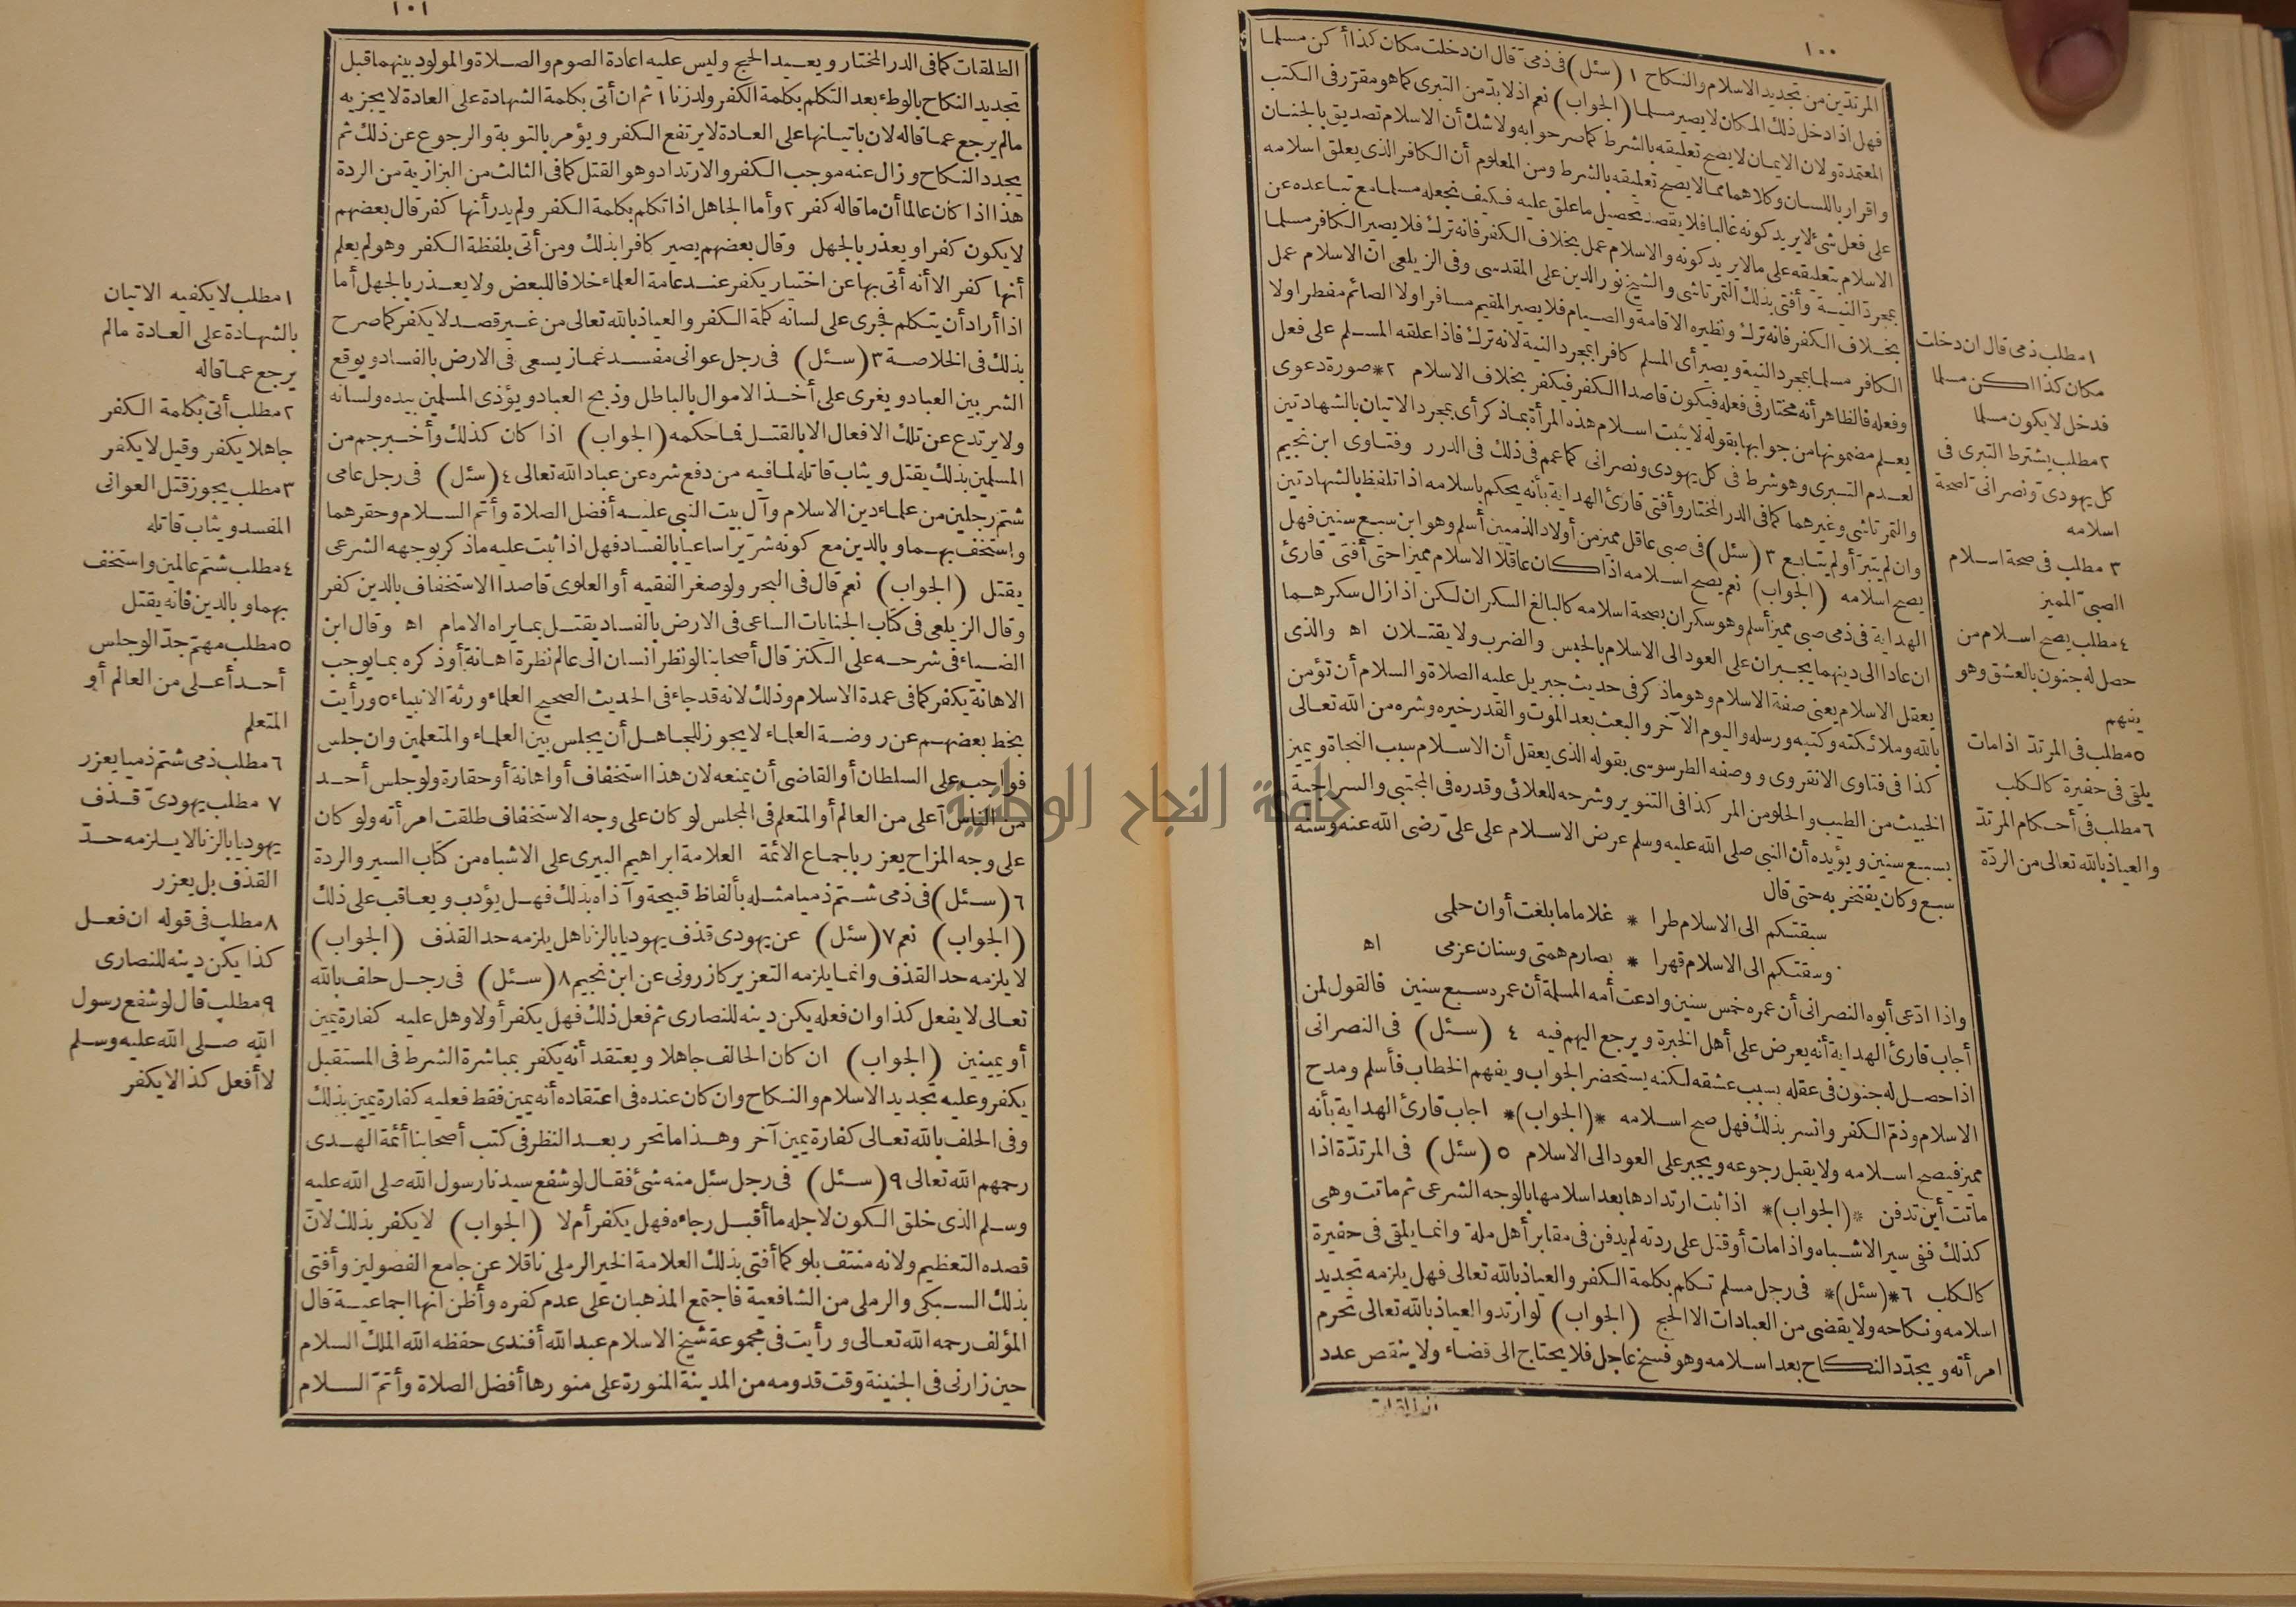 ١٠٠
المرتدين من تجديد الاسلام والنكاح ١ (سئل) فى ذمى قال ان دخلت مكان كذا أكن مسلما
فهل اذا دخل ذلك المكان لا يصير مسلما (الجواب) نعم اذ لا بد من التبرى كما هو مقرر فى الكتب
المعتمدة ولان الايمان لا يصح تعليقه بالشرط كما صرحوا به ولا شك أن الاسلام تصديق بالجنان
واقرار باللسان وكلاهما مما لا يصح تعليقه بالشرط ومن المعلوم أن الكافر الذى يعلق اسلامه
على فعل شئ لا يريد كونه غالبا فلا يقصد تحصيل ما علق عليه فكيف نجعله مسلما مع تباعده عن
الاسلام بتعليقه على ما لا يريد كونه والاسلام عمل بخلاف الكفر فانه ترك فلا يصير الكافر مسلما
بمجرد النية وأفتى بذلك التمرتاشى والشيخ نور الدين على المقدسى وفى الزيلعى ان الاسلام عمل
بخلاف الكفر فانه ترك ونظيره الاقامة والصيام فلا يصير المقيم مسافرا ولا الصائم مفطرا ولا
الكافر مسلما بمجرد النية ويصير أى المسلم كافرا بمجرد النية لانه ترك فاذا علقه المسلم على فعل
وفعله فالظاهر أنه مختار فى فعله فيكون قاصدا الكفر فيكفر بخلاف الاسلام ٢* صورة دعوى
يعلم مضمونها من جوابها بقوله لا يثبت اسلام هذه المرأة بما ذكر أى بمجرد الاتيان بالشهادتين
لعدم التبرى وهو شرط فى كل يهودى ونصرانى كما عمم فى ذلك فى الدرر وفتاوى ابن نجيم
والتمرتاشى وغيرهما كما فى الدر المختار وأفتى قارئ الهداية بأنه يحكم باسلامه اذا تلفظ بالشهادتين
وان لم يتبرأ ولم يتابع ٣ (سئل) فى صبى عاقل مميز من أولاد الذميين أسلم وهو ابن سبع سنين فهل
يصح اسلامه (الجواب) نعم يصح اسلامه اذا كان عاقلا الاسلام مميزا حتى أفتى قارئ
الهداية فى ذمى صبى مميز أسلم وهو سكران بصحة اسلامه كالبالغ السكران لكن اذا زال سكرهما
ان عادا الى دينهما يجبران على العود الى الاسلام بالحبس والضرب ولا يقتلان اه والذى
يعقل الاسلام يعنى صفة الاسلام وهو ما ذكر فى حديث جبريل عليه الصلاة والسلام أن تؤمن
بالله وملائكته وكتبه ورسله واليوم الآخر والبعث بعد الموت والقدر خيره وشره من الله تعالى
كذا فى فتاوى الانقروى ووصفه الطرسوسى بقوله الذى يعقل أن الاسلام سبب النجاة ويميز
الخبيث من الطيب والحلو من المر كذا فى التنوير وشرحه للعلائى وقدره فى المجتبى والسراجية
بسبع سنين ويؤيده أن النبى صلى الله عليه وسلم عرض الاسلام على علىّ رضى الله عنه وسنه
سبع وكان يفتخر به حتى قال
سبقتكم الى الاسلام طرا * غلاما ما بلغت أوان حلمى
وسقتكم الى الاسلام قهرا * بصارم همتى وسنان عزمى اه
واذا ادّعى أبوه النصرانى أن عمره خمس سنين وادعت أمه المسلمة أن عمره سبع سنين فالقول لمن
أجاب قارئ الهداية أنه يعرض على أهل الخبرة ويرجع اليهم فيه ٤ (سئل) فى النصرانى
اذا حصل له جنون فى عقله بسبب عشقه لكنه يستحضر الجواب ويفهم الخطاب فأسلم ومدح
الاسلام وذمّ الكفر وانسر بذلك فهل صح اسلامه *(الجواب)* اجاب قارئ الهداية بأنه
مميز فيصح اسلامه ولا يقبل رجوعه ويجبر على العود الى الاسلام ٥ (سئل) فى المرتدّة اذا
ماتت أين تدفن *(الجواب)* اذا ثبت ارتدادها بعد اسلامها بالوجه الشرعى ثم ماتت وهى
كذلك ففى سير الاشباه واذا مات أو قتل على ردته لم يدفن فى مقابر أهل ملة وانما يلقى فى حفيرة
كالكلب ٦*(سئل)* فى رجل مسلم تكلم بكلمة الكفر والعياذ بالله تعالى فهل يلزمه تجديد
اسلامه ونكاحه ولا يقضى من العبادات الا الحج (الجواب) لو ارتد والعياذ بالله تعالى تحرم
امرأته ويجدّد النكاح بعد اسلامه وهو فسخ عاجل فلا يحتاج الى قضاء ولا ينقص عدد
١ مطلب ذمى قال ان دخلت
مكان كذا اكن مسلما
فدخل لا يكون مسلما
٢ مطلب يشترط التبرى فى
كل يهودىّ ونصرانى لصحة
اسلامه
٣ مطلب فى صحة اسلام
الصبىّ المميز
٤ مطلب يصح اسلام من
حصل له جنون بالعشق وهو
يفهم
٥ مطلب فى المرتدّ اذا مات
يلقى فى حفيرة كالكلب
٦ مطلب فى أحكام المرتدّ
والعياذ بالله تعالى من الردّة
١٠١
الطلقات كما فى الدر المختار ويعيد الحج وليس عليه اعادة الصوم والصلاة والمولود بينهما قبل
تجديد النكاح بالوطء بعد التكلم بكلمة الكفر ولد زنا ١ ثم ان أتى بكلمة الشهادة على العادة لا يجزيه
ما لم يرجع عما قاله لان باتيانها على العادة لا يرتفع الكفر ويؤمر بالتوبة والرجوع عن ذلك ثم
يجدد النكاح وزال عنه موجب الكفر والارتداد وهو القتل كما فى الثالث من البزازية من الردة
هذا اذا كان عالما أن ما قاله كفر ٢ وأما الجاهل اذا تكلم بكلمة الكفر ولم يدر أنها كفر قال بعضهم
لا يكون كفرا ويعذر بالجهل وقال بعضهم يصير كافرا بذلك ومن أتى بلفظة الكفر وهو لم يعلم
أنها كفر الا أنه أتى بها عن اختيار يكفر عند عامة العلماء خلافا للبعض ولا يعذر بالجهل أما
اذا أراد أن يتكلم فجرى على لسانه كلمة الكفر والعياذ بالله تعالى من غير قصد لا يكفر كما صرح
بذلك فى الخلاصة ٣ (سئل) فى رجل عوانى مفسد غماز يسعى فى الارض بالفساد ويوقع
الشر بين العباد ويغرى على أخذ الاموال بالباطل وذبح العباد ويؤذى المسلمين بيده ولسانه
ولا يرتدع عن تلك الافعال الا بالقتل فما حكمه (الجواب) اذا كان كذلك وأخبر جم من
المسلمين بذلك يقتل ويثاب قاتله لما فيه من دفع شره عن عباد الله تعالى ٤ (سئل) فى رجل عامى
شتم رجلين من علماء دين الاسلام وآل بيت النبى عليه أفضل الصلاة وأتم السلام وحقرهما
واستخف بهما وبالدين مع كونه شرّيرا ساعيا بالفساد فهل اذا ثبت عليه ما ذكر بوجهه الشرعى
يقتل (الجواب) نعم قال فى البحر ولو صغر الفقيه أو العلوى قاصدا الاستخفاف بالدين كفر
وقال الزيلعى فى كتاب الجنايات الساعى فى الارض بالفساد يقتل بما يراه الامام اه وقال ابن
الضياء فى شرحه على الكنز قال أصحابنا لو نظر انسان الى عالم نظرة اهانة أو ذكره بما يوجب
الاهانة يكفر كما فى عمدة الاسلام وذلك لانه قد جاء فى الحديث الصحيح العلماء ورثة الانبياء ٥ ورأيت
بخط بعضهم عن روضة العلماء لا يجوز للجاهل أن يجلس بين العلماء والمتعلمين وان جلس
فواجب على السلطان أو القاضى أن يمنعه لان هذا استخفاف أو اهانة أو حقارة ولو جلس أحد
من الناس أعلى من العالم أو المتعلم فى المجلس لو كان على وجه الاستخفاف طلقت امرأته ولو كان
على وجه المزاح يعزر باجماع الائمة العلامة ابراهيم البيرى على الاشباه من كتاب السير والردة
٦ (سئل) فى ذمى شتم ذميا مثله بألفاظ قبيحة وآذاه بذلك فهل يؤدب ويعاقب على ذلك
(الجواب) نعم ٧ (سئل) عن يهودى قذف يهوديا بالزنا هل يلزمه حد القذف (الجواب)
لا يلزمه حد القذف وانما يلزمه التعزير كازرونى عن ابن نجيم ٨ (سئل) فى رجل حلف بالله
تعالى لا يفعل كذا وان فعله يكن دينه للنصارى ثم فعل ذلك فهل يكفر أولا وهل عليه كفارة يمين
أو يمينين (الجواب) ان كان الحالف جاهلا ويعتقد أنه يكفر بمباشرة الشرط فى المستقبل
يكفر وعليه تجديد الاسلام والنكاح وان كان عنده فى اعتقاده أنه يمين فقط فعليه كفارة يمين بذلك
وفى الحلف بالله تعالى كفارة يمين آخر وهذا ما تحرر بعد النظر فى كتب أصحابنا أئمة الهدى
رحمهم الله تعالى ٩ (سئل) فى رجل سئل منه شئ فقال لو شفع سيدنا رسول الله صلى الله عليه
وسلم الذى خلق الكون لاجله ما أقبل رجاءه فهل يكفر أم لا (الجواب) لا يكفر بذلك لانّ
قصده التعظيم ولانه منتف بلو كما أفتى بذلك العلامة الخير الرملى ناقلا عن جامع الفصولين وأفتى
بذلك السبكى والرملى من الشافعية فاجتمع المذهبان على عدم كفره وأظن انها اجماعية قال
المؤلف رحمه الله تعالى ورأيت فى مجموعة شيخ الاسلام عبد الله أفندى حفظه الله الملك السلام
حين زارنى فى الجنينة وقت قدومه من المدينة المنورة على منورها أفضل الصلاة وأتمّ السلام
١ مطلب لا يكفيه الاتيان
بالشهادة على العادة ما لم
يرجع عما قاله
٢ مطلب أتى بكلمة الكفر
جاهلا يكفر وقيل لا يكفر
٣ مطلب يجوز قتل العوانى
المفسد ويثاب قاتله
٤ مطلب شتم عالمين واستخف
بهما وبالدين فانه يقتل
٥ مطلب مهمّ جدّا لو جلس
أحد أعلى من العالم أو
المتعلم
٦ مطلب ذمى شتم ذميا يعزر
٧ مطلب يهودىّ قذف
يهوديا بالزنا لا يلزمه حدّ
القذف بل يعزر
٨ مطلب فى قوله ان فعل
كذا يكن دينه للنصارى
٩ مطلب قال لو شفع رسول
الله صلى الله عليه وسلم
لا أفعل كذا لا يكفر
جامعة النجاح الوطنية